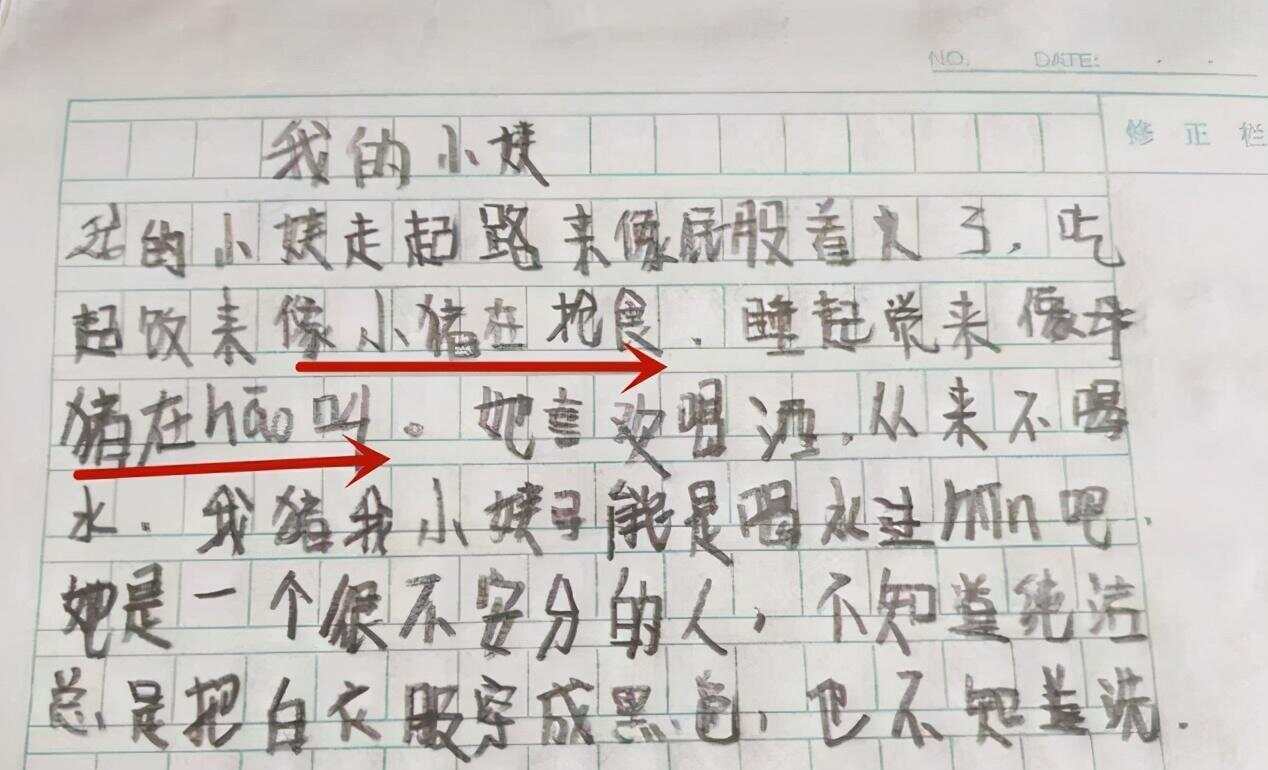 NO. DATE:
修正栏
我的小姨
我的小姨走起路来像屁股着火了，吃
起饭来像小猪在抢食．睡起觉来像母
猪在hāo叫。她喜欢喝酒．从来不喝
水．我猪我小姨可能是喝水过mǐn吧．
她是一个很不安分的人，不知道纯洁
总是把白衣服穿成黑色，也不知道洗．